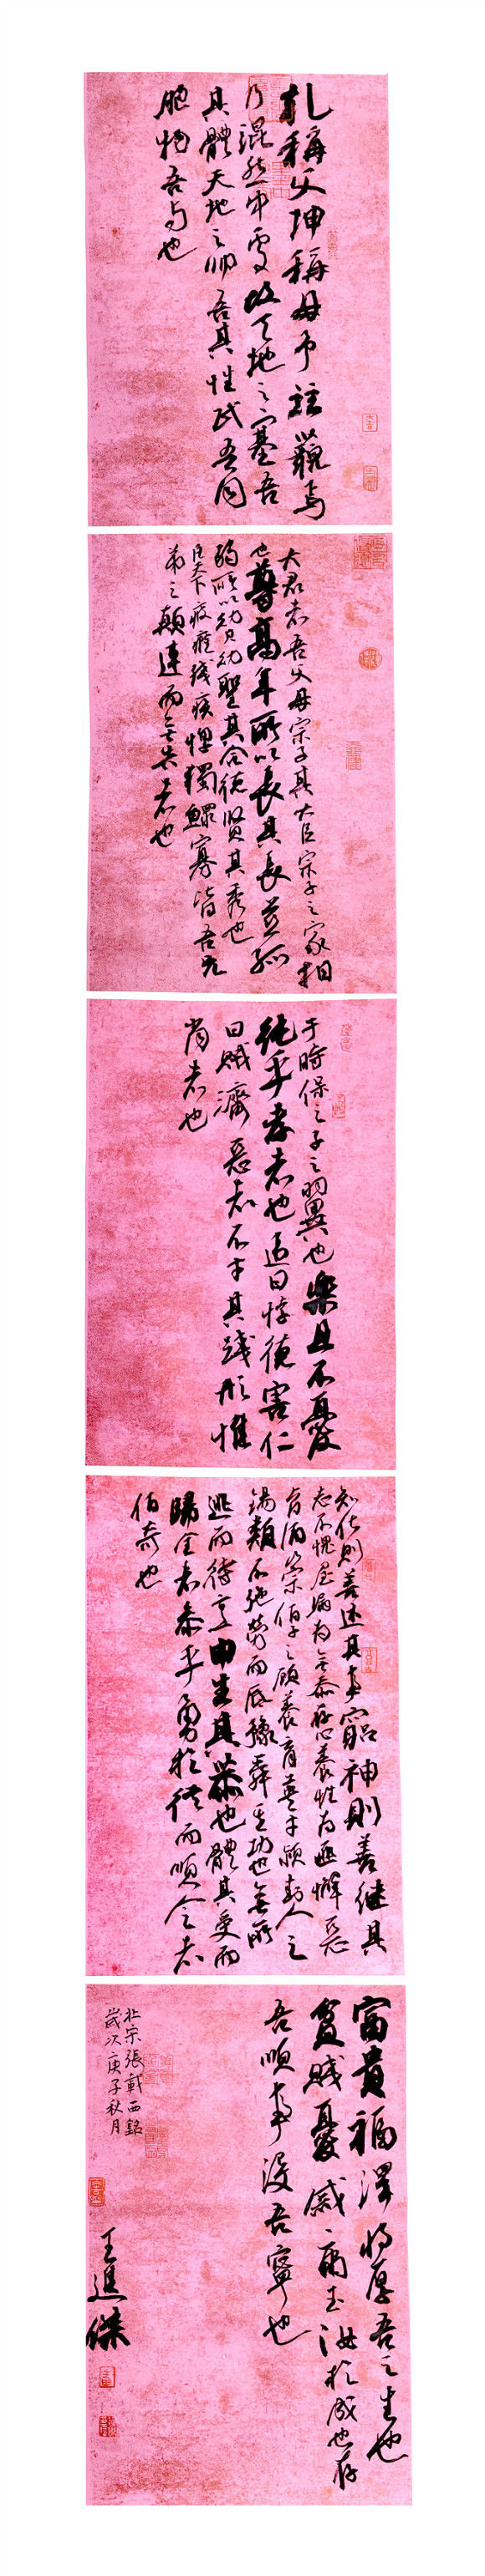 乾稱父坤稱母予茲藐焉
乃混然中處故天地之塞吾
其體天地之帥吾其性民吾同
胞物吾与也
大君者吾父母宗子其大臣宗子之家相
也尊高年所以長其長慈孤
弱所以幼其幼聖其合德賢其秀也
凡天下疲癃殘疾惸獨鰥寡皆吾兄
弟之顛連而無告者也
于時保之子之翼也樂且不憂
純乎孝者也違曰悖德害仁
曰賊濟惡者不才其踐形惟
肖者也
知化則善述其事窮神則善繼其
志不愧屋漏為無忝存心養性為匪懈惡
旨酒崇伯子之顧養育英才潁封人之
錫類不弛勞而底豫舜其功也無所
逃而待烹申生其恭也體其受而
歸全者參乎勇於從而順令者
伯奇也
富貴福澤將厚吾之生也
貧賤憂戚庸玉汝於成也存
吾順事沒吾寧也
北宋張載西銘
歲次庚子秋月
王進傑